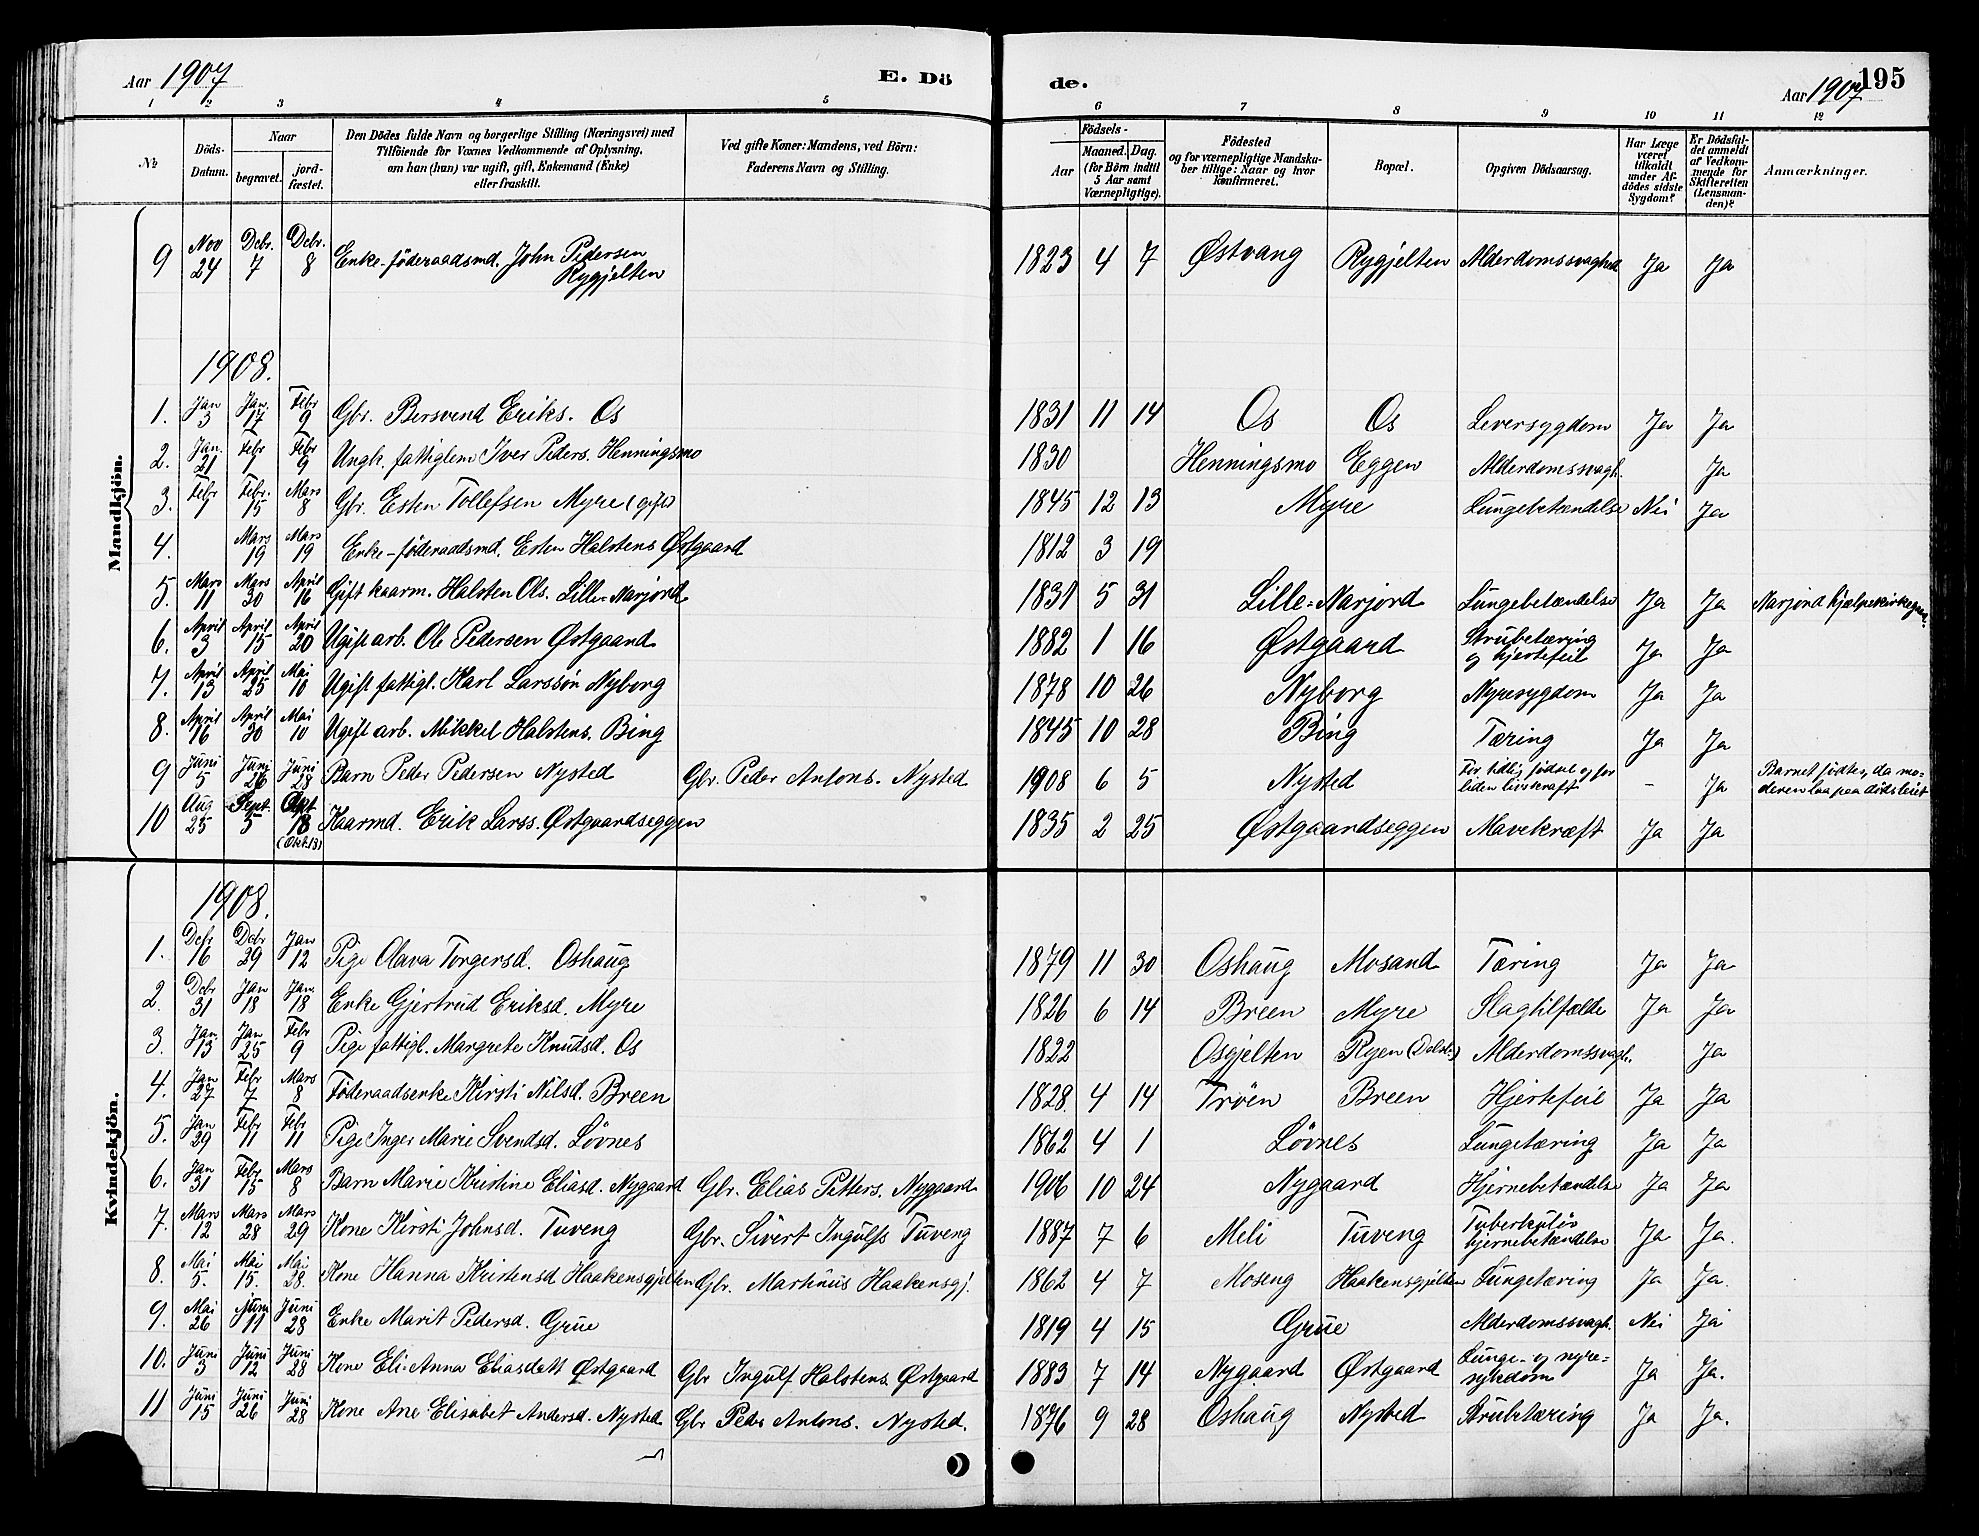 Aar 1907
E. Dö
de.
Aar 1907
195
1 2 3 4 5 6 7 8 9 10 11 12
No
Döds-Datum.
Naar
begravet.
jord-fæstet.
Den Dödes fulde Navn og borgerlige Stilling (Næringsvei) med
Tilföiende for Voxnes Vedkommende af Oplysning,
om han (hun) var ugift, gift, Enkemand (Enke)
eller fraskilt.
Ved gifte Koner: Mandens, ved Börn:
Faderens Navn og Stilling.
Födsels-
Aar
Maaned. Dag.
(for Börn indtil
5 Aar samt
Værnepligtige).
Födested
og for værnepligtige Mandska-
ber tillige: Naar og hvor
konfirmeret.
Bopæl.
Opgiven Dödsaarsag.
Har Læge
været
tilkaldt
under Af-
dödes sidste
Sygdom?
Er Dödsfal-
det anmeldt
af Vedkom-
mende for
Skifteretten
(Lensman-
den)?
Anmærkninger.
Mandkjön.
9 Nov 24 Debr. 7 Debr. 8 Enke-föderaadsmd. John Pedersen Rygjelten 1823 4 7 Østvang Rygjelten Alderdomssvaghed Ja Ja
1908.
1. Jan 3 Jan. 17 Febr 9 Gbr. Bersvend Eriks. Os 1831 11 14 Os Os Leversygdom Ja Ja
2. Jan. 21 Febr 1 Febr 9 Ungk. fattiglem Iver Peders. Henningsmo 1830 Henningsmo Eggen Alderdomssvagh. Ja
3. Febr 1 Febr. 15 Mars 8 Gbr. Esten Tollefsen Myre (gift) 1845 12 13 Myre Lungebetændelse Nei Ja
4. Mars 19 Mars 19 Enke-föderaadsmd. Esten Halstens Østgaard 1812 3 19
5. Mars 11 Mars 30 April 16 Gift kaarm. Halsten Ols. Lille-Narjord 1831 5 31 Lille-Narjord Lungebetændelse Ja Ja Narjord hjælpekirkegaa.
6. April 3 April 15 April 20 Ugift arb. Ole Pedersen Østgaard 1882 1 16 Østgaard Strubetæring og hjertefeil Ja Ja
7. April 13 April 25 Mai 10 Ugift fattigl. Karl Larssön Nyborg 1878 10 26 Nyborg Nyresygdom Ja Ja
8. April 16 April 30 Mai 10 Ugift arb. Mikkel Halstens. Bing 1845 10 28 Bing Tæring Ja Ja
9 Juni 5 Juni 26 Juni 28 Barn Peder Pedersen Nysted Gbr. Peder Antons. Nysted 1908 6 5 Nysted For tidlig födsel og for liden livskraft - Ja Barnet födtes, da mo-
deren laa paa dödsleiet
10 Aug 25 Sept. 5 Okt 18 (Okt. 13) Kaarmd. Erik Larss. Østgaardseggen 1835 2 25 Østgaardseggen Mavekræft Ja Ja
Kvindekjön.
1908.
1. Debr 16 Debr 29 Jan 12 Pige Olava Torgersd. Oshaug 1879 11 30 Oshaug Mosand Tæring Ja Ja
2. Debr 31 Jan 18 Jan. 18 Enke Gjertrud Eriksd. Myre 1826 6 14 Breen Myre Slagtilfælde Ja Ja
3. Jan 13 Jan 25 Febr 9 Pige fattigl. Margrete Knudsd. Os 1822 Osgjelten Ryen (Dalsb.) Alderdomssvagh. Ja
4. Jan 27 Febr 7 Mars 8 Föderaadsenke Kirsti Nilsd. Breen 1828. 4 14 Trøen Breen Hjertefeil Ja Ja
5. Jan 29 Febr 11 Febr 11 Pige Inger Marie Svendsd. Løvnes 1862 4 1 Løvnes Lungetæring Ja Ja
6. Jan 31 Febr 15 Mars 8 Barn Marie Kristine Eliasd. Nygaard Gbr. Elias Petters. Nygaard 1906 10 24 Nygaard Hjernebetændelse Ja Ja
7. Mars 12 Mars 28 Mars 29 Kone Kirsti Johnsd. Tuveng Gbr. Sivert Ingulfs Tuveng 1887 7 6 Meli Tuveng Tuberkuløs hjernebetændelse Ja Ja.
8. Mai 5. Mai 15. Mai 28. Kone Hanna Kristensd Haakensgjelten Gbr. Martinus Haakensgj. 1862 4 7 Moseng Haakensgjelten Lungetæring Ja Ja.
9. Mai 26 Juni 11 Juni 28 Enke Marit Pedersd. Grue 1819 4 15 Grue Alderdomssvagh. Nei Ja
10. Juni 3 Juni 12 Juni 28 Kone Eli-Anna Eliasdatt Østgaard Gbr Ingulf Halstens. Østgaard 1883 7 14 Nygaard Østgaard Lunge- og nyre-
sykdom Ja Ja.
11 Juni 15 Juni 26 Juni 28 Kone Ane Elisabet Andersd. Nysted Gbr Peder Antons. Nysted. 1876 9 28 Oshaug Nysted Strubetæring Ja Ja.